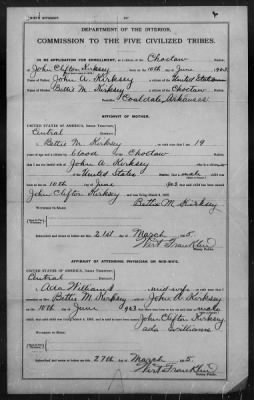 DEPARTMENT OF THE INTERIOR.
COMMISSION TO THE FIVE CIVILIZED TRIBES.
IN RE APPLICATION FOR ENROLLMENT, as a citizen of the Choctaw Nation,
of John Clifton Kirksey, born on the 10th day of June, 1903
Name of Father: John A. Kirksey a citizen of the United States Nation.
Name of Mother: Bettie M. Kirksey a citizen of the Choctaw Nation.
Postoffice Arkansas
AFFIDAVIT OF MOTHER.
UNITED STATES OF AMERICA, Indian Territory,
Central District.
I, Bettie M. Kirksey, on oath state that I am 19
years of age and a citizen by blood, of the Choctaw Nation;
that I am the lawful wife of John A. Kirksey, who is a citizen,
of the United States Nation; that a male child was
born to me on 10th day of June, 1903, that said child has been named
John Clifton Kirksey, and is now living.
Bettie M. Kirksey
Subscribed and sworn to before me this 21st day of March, 1905.
Wirt Franklin
Notary Public.
AFFIDAVIT OF ATTENDING PHYSICIAN OR MID-WIFE.
UNITED STATES OF AMERICA, Indian Territory,
Central District.
I, Ada Williams, a mid-wife, on oath state that I
attended on Mrs. Bettie M. Kirksey, wife of John A. Kirksey
on the 10th day of June, 1903, that there was born to her on said date a male
child; that said child is now living and is said to have been named John Clifton Kirksey
ada williams
Subscribed and sworn to before me this 27th day of March, 1905.
Wirt Franklin
Notary Public.